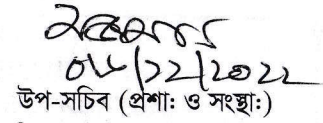 ০৮/১২/২০২২
উপ-সচিব (প্রশাঃ ও সংস্থাঃ)